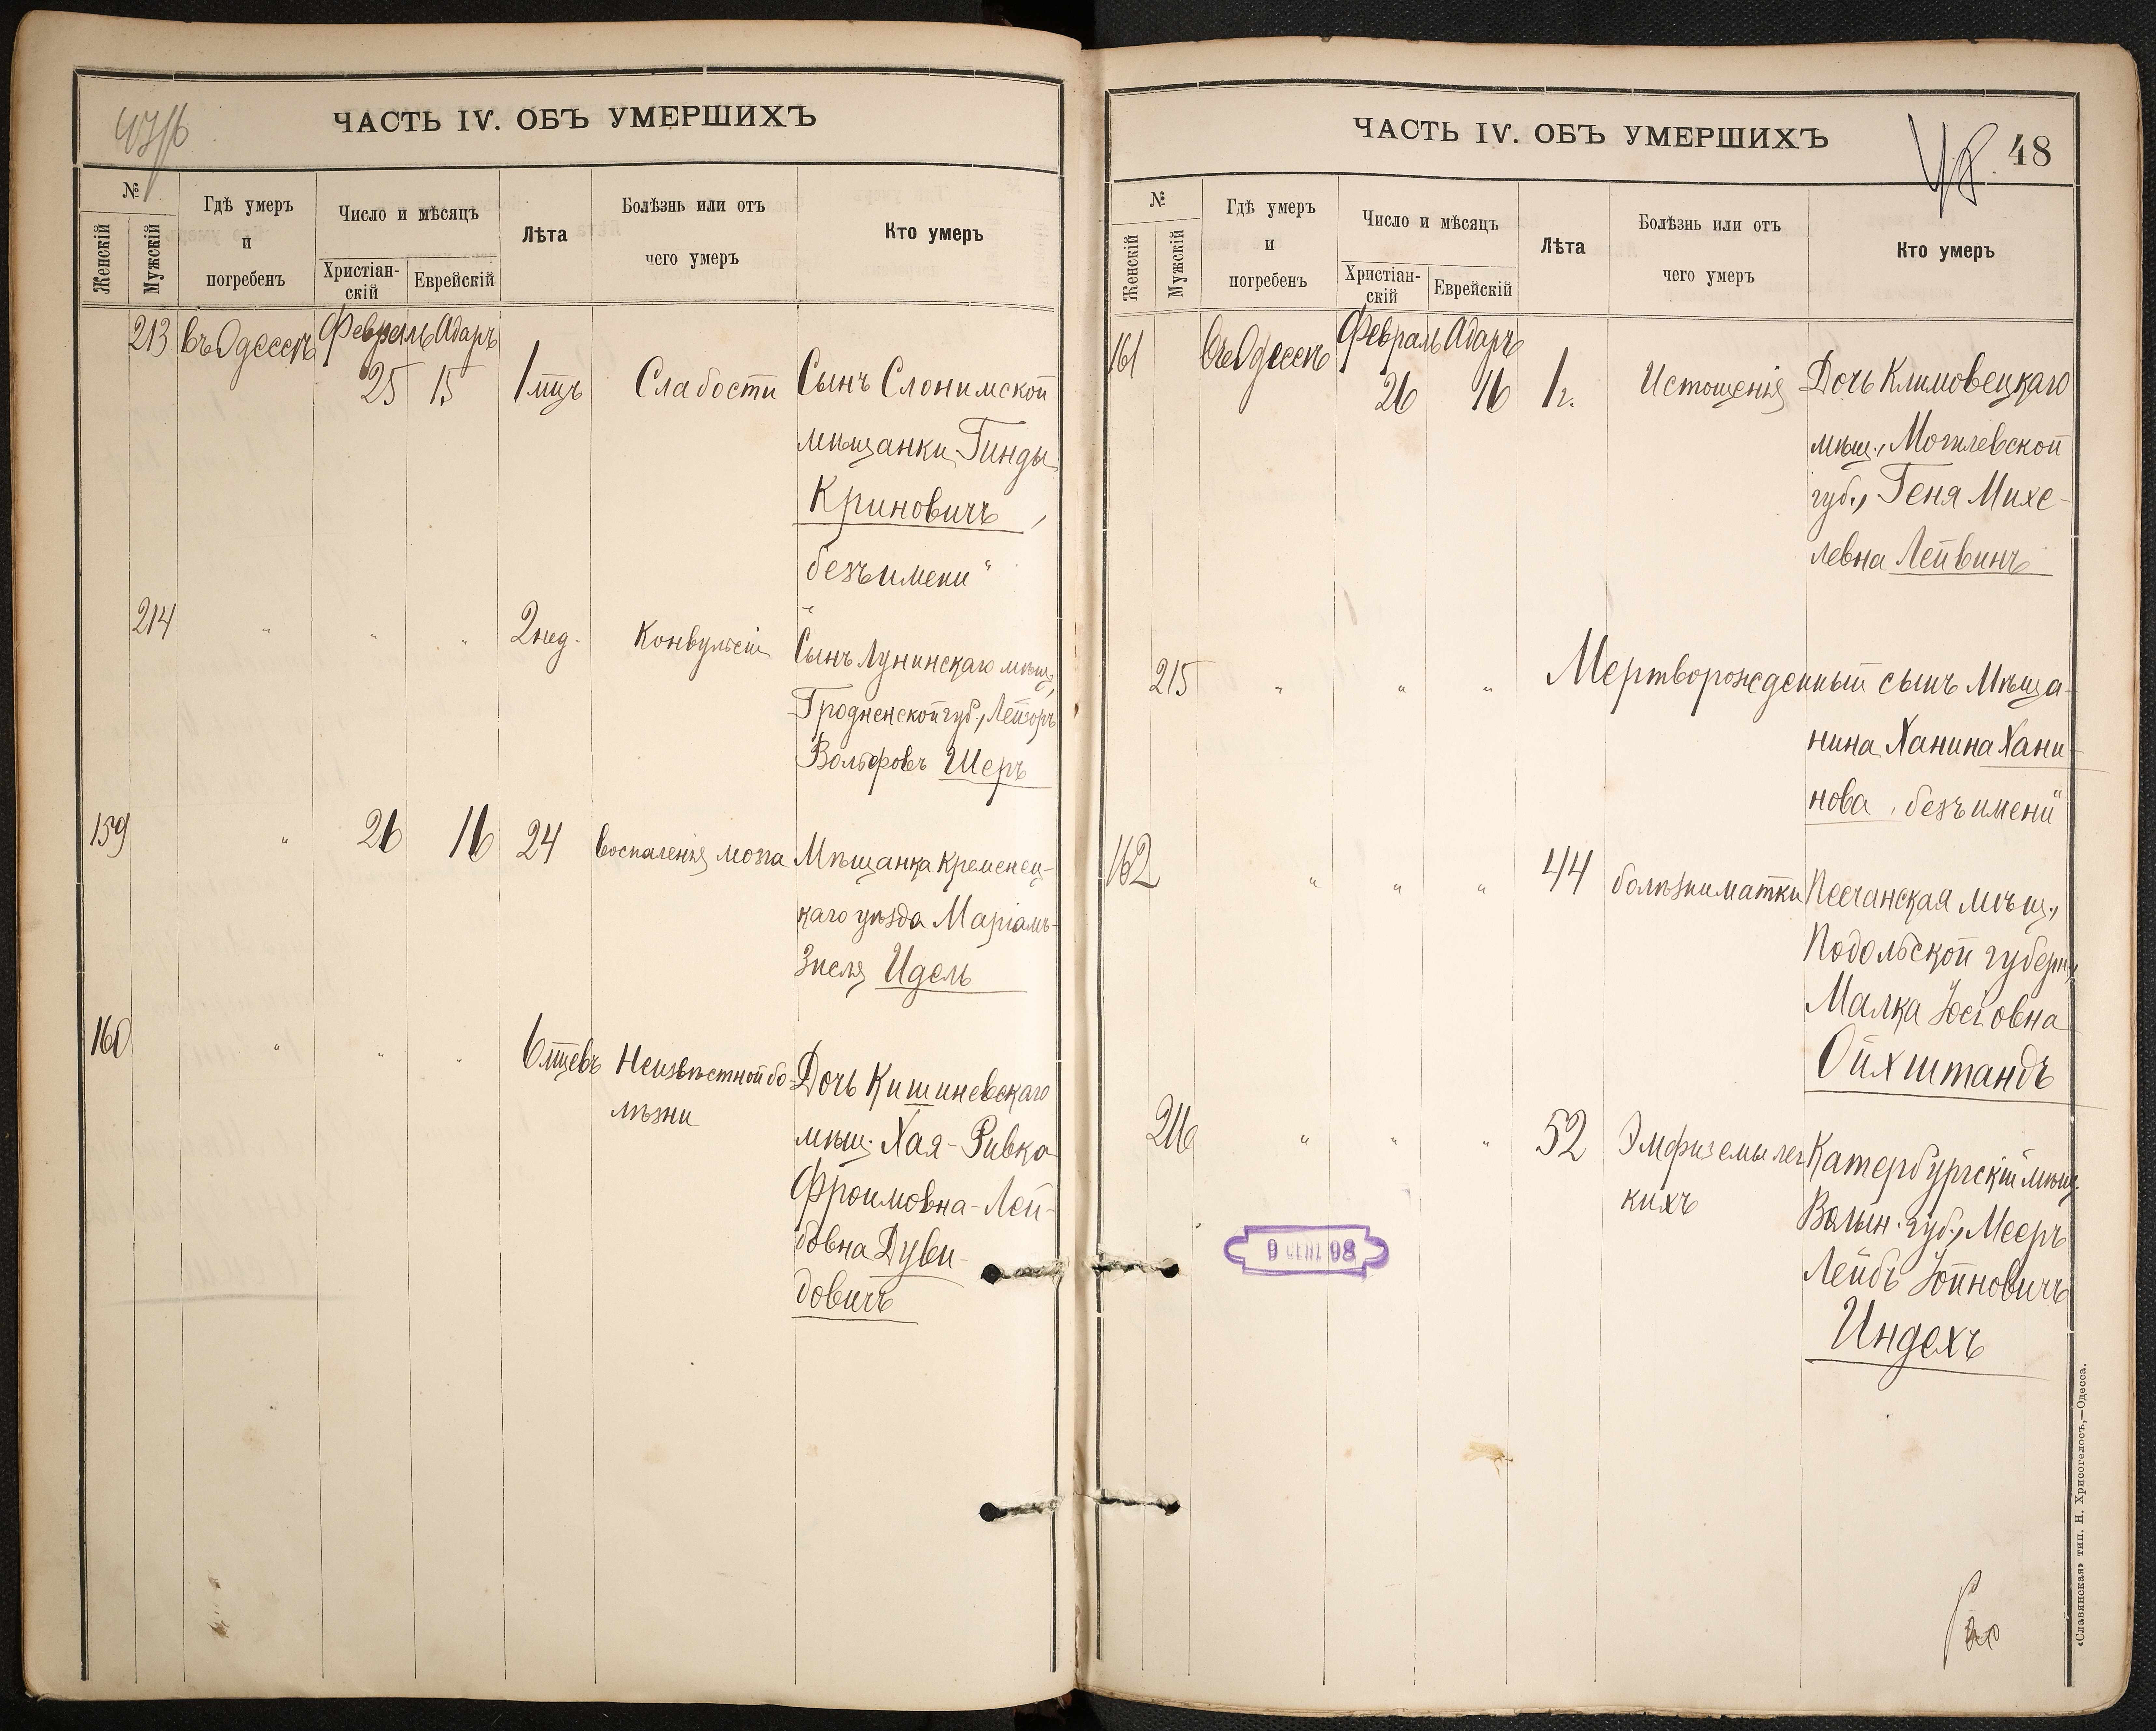 47/6
ЧАСТЬ IV. ОБЪ УМЕРШИХЪ
№
Женскій
Мужскій
Гдѣ умеръ
и
погребенъ
Число и мѣсяцъ
Христіан-
скій
Еврейскій
Лѣта
Болѣзнь или отъ
чего умеръ
Кто умеръ
213 въ Одессѣ Февраль Адаръ
25 15 1 мцъ Слабости Сынъ Слонимской
мѣщанки Гинды
Криновичъ,
безъ имени"
214 " " " 2 нед. Конвульсіи Сынъ Лунинскаго мѣщ.,
Гродненской губ., Лейзоръ
Вольфовъ Шеръ
159 " 26 16 24 воспаленія мозга Мѣщанка Кременец-
каго уѣзда Маріамъ-
Зисля Идель
160 " " " 6 мцевъ Неизвѣстной бо- Дочь Кишиневскаго
лѣзни мѣщ. Хая-Ривка
Фроимовна-Лей-
бовна Дуви-
довичъ
ЧАСТЬ IV. ОБЪ УМЕРШИХЪ
48. 48
№
Женскій
Мужскій
Гдѣ умеръ
и
погребенъ
Число и мѣсяцъ
Христіан-
скій
Еврейскій
Лѣта
Болѣзнь или отъ
чего умеръ
Кто умеръ
161 въ Одессѣ Февраль Адаръ
26 16 1 г. Истощенія Дочь Климовецкаго
мѣщ., Могилевской
губ., Геня Михе-
левна Лейвинъ
215 " " " Мертворожденный сынъ Мѣща-
нина Ханина Хани-
нова, безъ имени"
162 " " " 44 болѣзни матки Песчанская мѣщ.,
Подольской губерн.,
Малка Іосіовна
Ойхштандъ
216 " " " 52 Эмфиземы лег Катербургскій мѣщ.
кихъ Волын. губ., Мееръ
Лейбъ Іойновичъ
Индехъ
9 СЕНТ. 98
«Славянская» тип. Н. Хрисогелосъ,—Одесса.